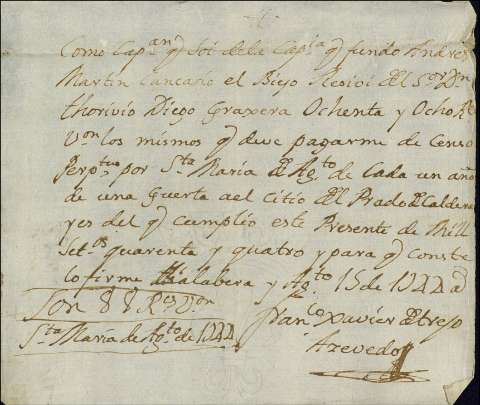 Como Cap.an q.e soi de la Cap.a q.e fundo Andres
Martin Cancano el Biejo Recivi del S.or D.n
thorivio Diego Graxera Ochenta y Ocho R.s
V.on los mismos q.e deve pagarme de Censo
Perp.tuo por S.ta Maria de Ag.to de Cada un año
de una Guerta ael Citio del Prado de Caldera
yes del q.e cumplio este Presente de Mill
Set.os quarenta y quatro y para q.e conste
lo firme Talabera y Ag.to 15 de 1744 a.s
Son 88 R.es V.on
Fran.co Xavier de trejo
S.ta Maria de Ag.to de 1744
Azevedo